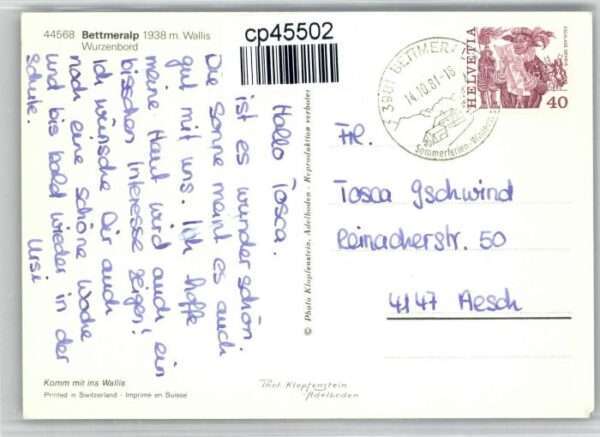 44568 Bettmeralp 1938 m. Wallis
Wurzenbord
cp45502
Hallo Tosca.
Die Sonne meint es auch
gut mit uns. Ich hoffe
meine Haut wird auch ein
bisschen Interesse zeigen!
Ich wünsche Dir auch
noch eine schöne Woche
und bis bald wieder in der
Schule.
Ursi
ist es wunderschön.
© Photo Klopfenstein, Adelboden - Reproduktion verboten
3901 BETTMERALP
14.10.81-18
Sommerferien
HELVETIA
40
FR.
Tosca Gschwind
Reinacherstr. 50
4147 Aesch
Komm mit ins Wallis
Printed in Switzerland - Imprimé en Suisse
Phot. Klopfenstein
Adelboden